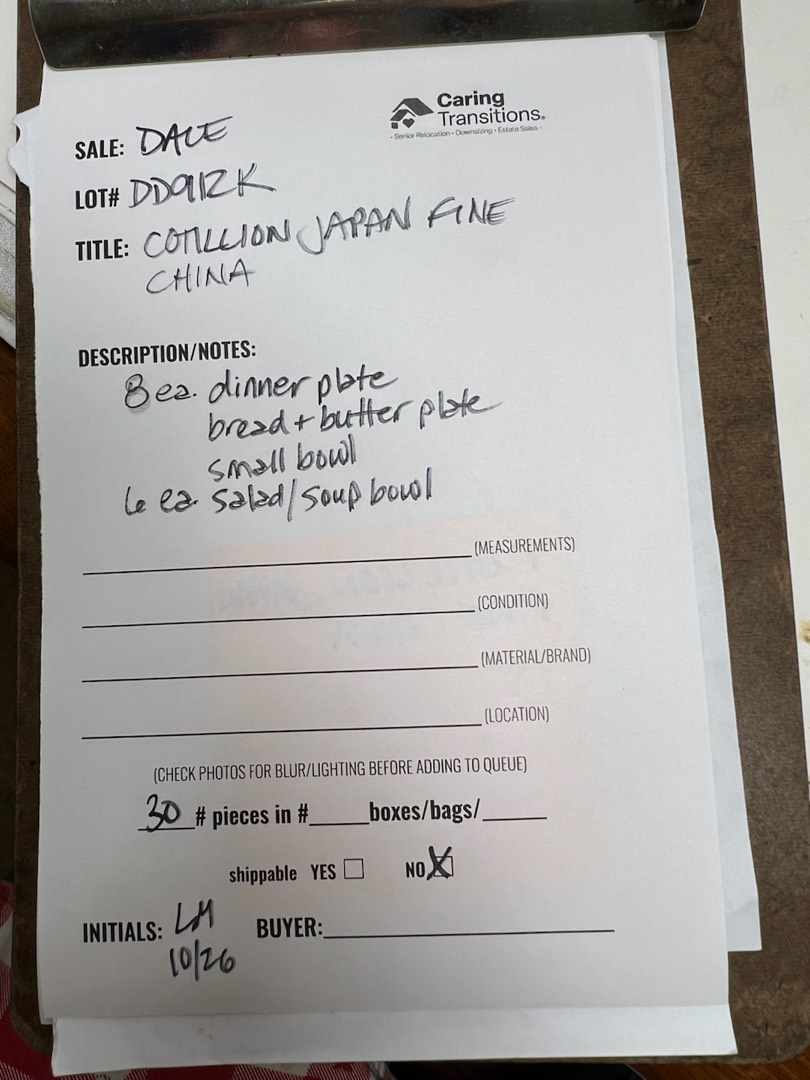 Caring
Transitions.
- Senior Relocation • Downsizing • Estate Sales -
SALE: DALE
LOT# DD912K
TITLE: COTILLION JAPAN FINE
CHINA
DESCRIPTION/NOTES:
8 ea. dinner plate
bread + butter plate
small bowl
6 ea. salad/soup bowl
(MEASUREMENTS)
(CONDITION)
(MATERIAL/BRAND)
(LOCATION)
(CHECK PHOTOS FOR BLUR/LIGHTING BEFORE ADDING TO QUEUE)
30 # pieces in #_____boxes/bags/_____
shippable YES ☐ NO ☒
INITIALS: LM BUYER:
10/26